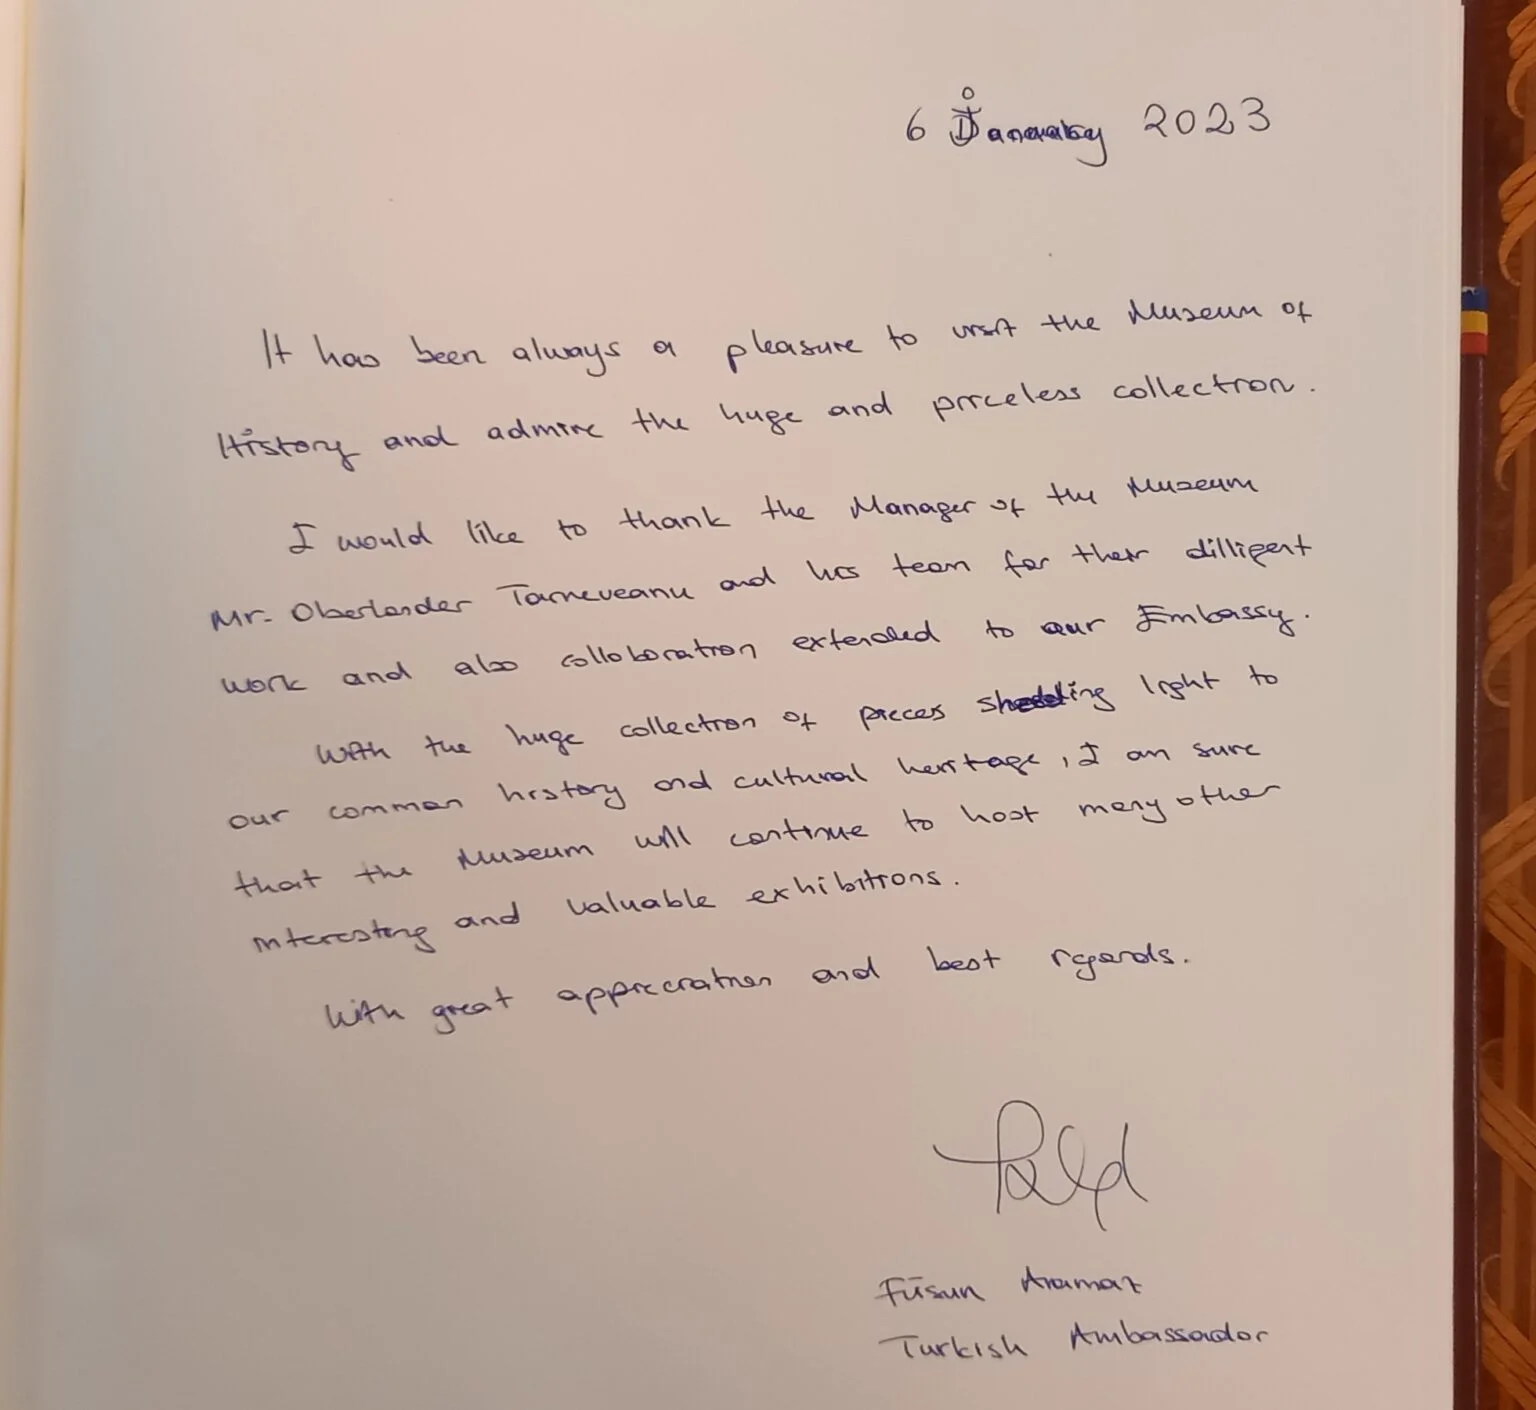 6 January 2023
It has been always a pleasure to visit the Museum of
History and admire the huge and priceless collection.
I would like to thank the Manager of the Museum
Mr. Oberlander Tarneveanu and his team for their dilligent
work and also colloboration extended to our Embassy.
With the huge collection of pieces shedding light to
our common history and cultural heritage, I am sure
that the Museum will continue to host many other
interesting and valuable exhibitions.
With great appreciation and best rgards.
Füsun Aramaz
Turkish Ambassador